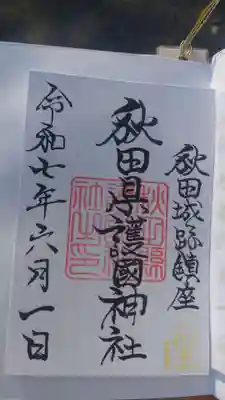 秋田城跡鎮座
秋田県護國神社
令和七年六月一日